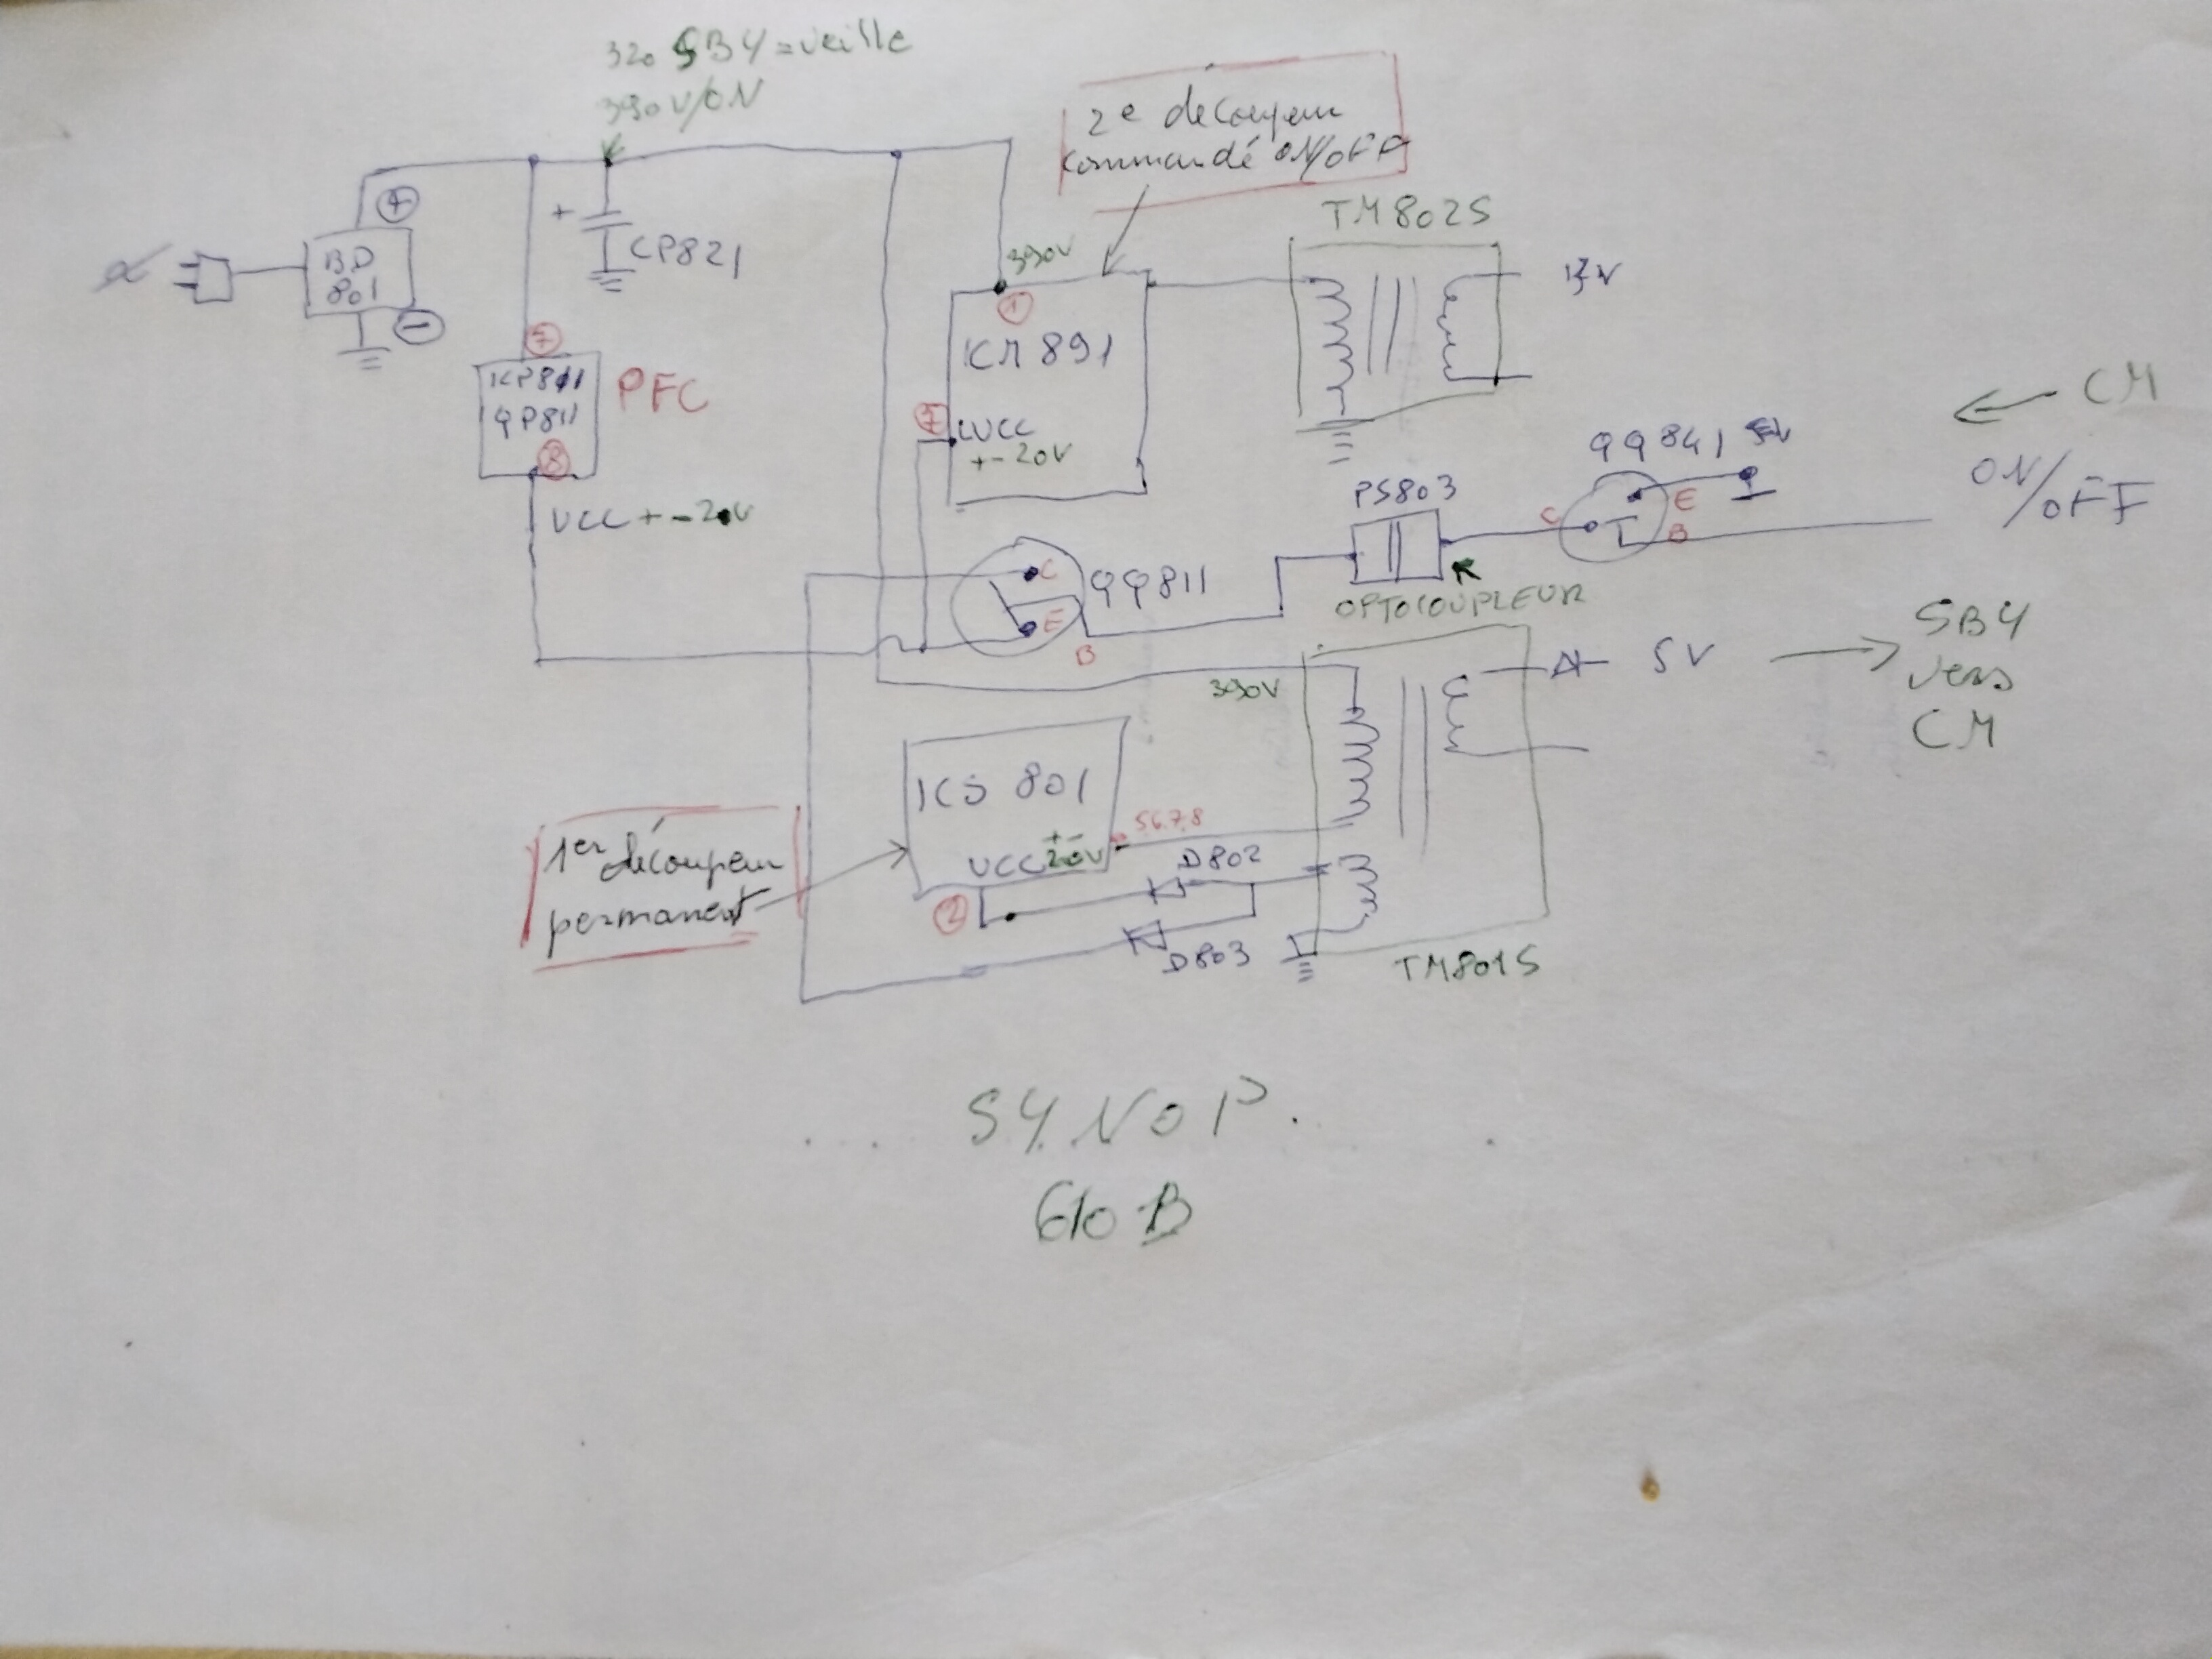 320 SBY = veille
390V/ON
2e decoupeur
commandé ON/OFF
TM802S
+
+
CP821
BD
801
-
390V
1
12V
7
ICP811
QP811
PFC
8
VCC +-20V
ICM891
7
VCC
+-20V
CM
ON
/OFF
QQ841
C
E
B
PS803
OPTOCOUPLEUR
C
QQ811
E
B
390V
5V
SBY
vers
CM
ICS 801
+-
VCC 20V
5678
1er découpeur
permanent
2
D802
D803
TM801S
SY.NOP.
GloB